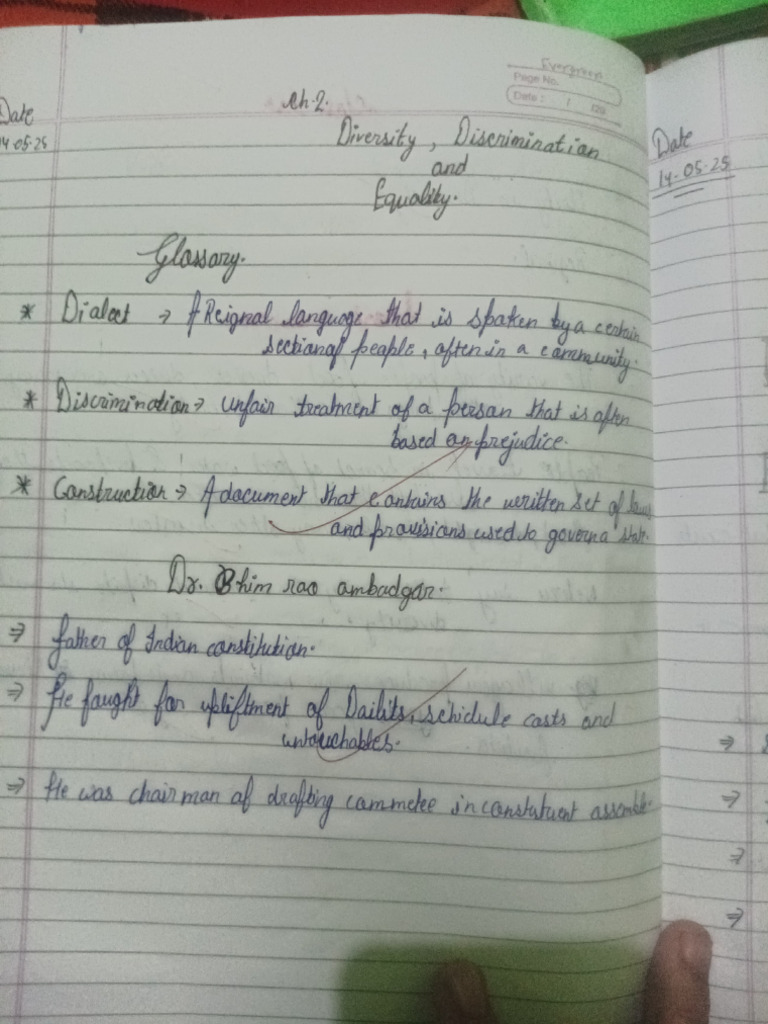 Evergreen
Page No.
Date : / /20
Date
14.05.25
Ch.2.
Diversity, Discrimination
and
Equality.
Glossary.
* Dialect → A Reignal language that is spoken by a certain
section of people, often in a community.
* Discrimination → unfair treatment of a person that is often
based on prejudice.
* Construction → A document that contains the written set of laws
and provisions used to govern a state.
Dr. Bhim rao ambadgar.
⇒ father of Indian constitution.
⇒ He faught for upliftment of Dailits, schidule casts and
untouchables.
⇒ He was chairman of drafting commetee in constutuent assemble.
Date
14-05-25
⇒
⇒
⇒
⇒